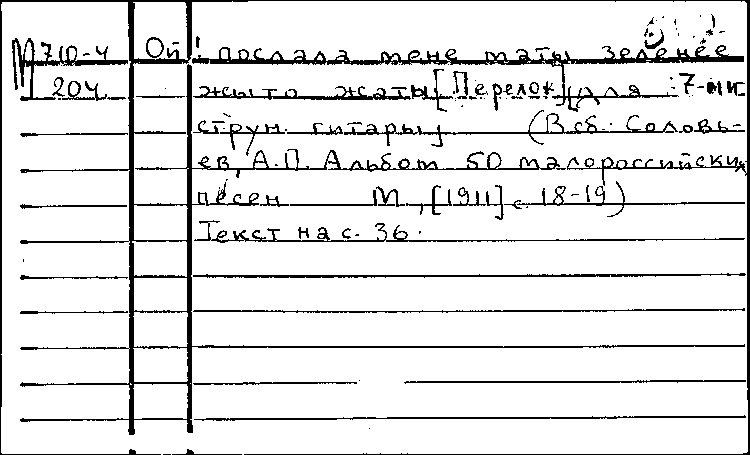 М710-4 Ой! послала мене маты зеленее
204 жыто жаты [Перелож. для 7-ми
струн. гитары] (В сб. Соловь-
ев, А.П. Альбом 50 малороссийских
песен М., [1911] с. 18-19)
Текст на с. 36.